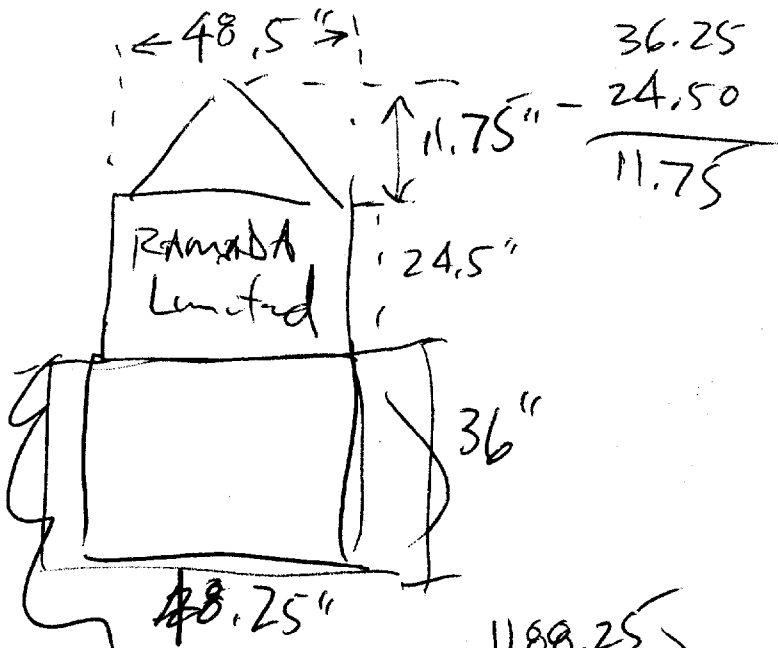 48.5"
36.25
11.75" - 24.50
11.75
RAMADA
Limited
24.5"
36"
48.25"
1188.25